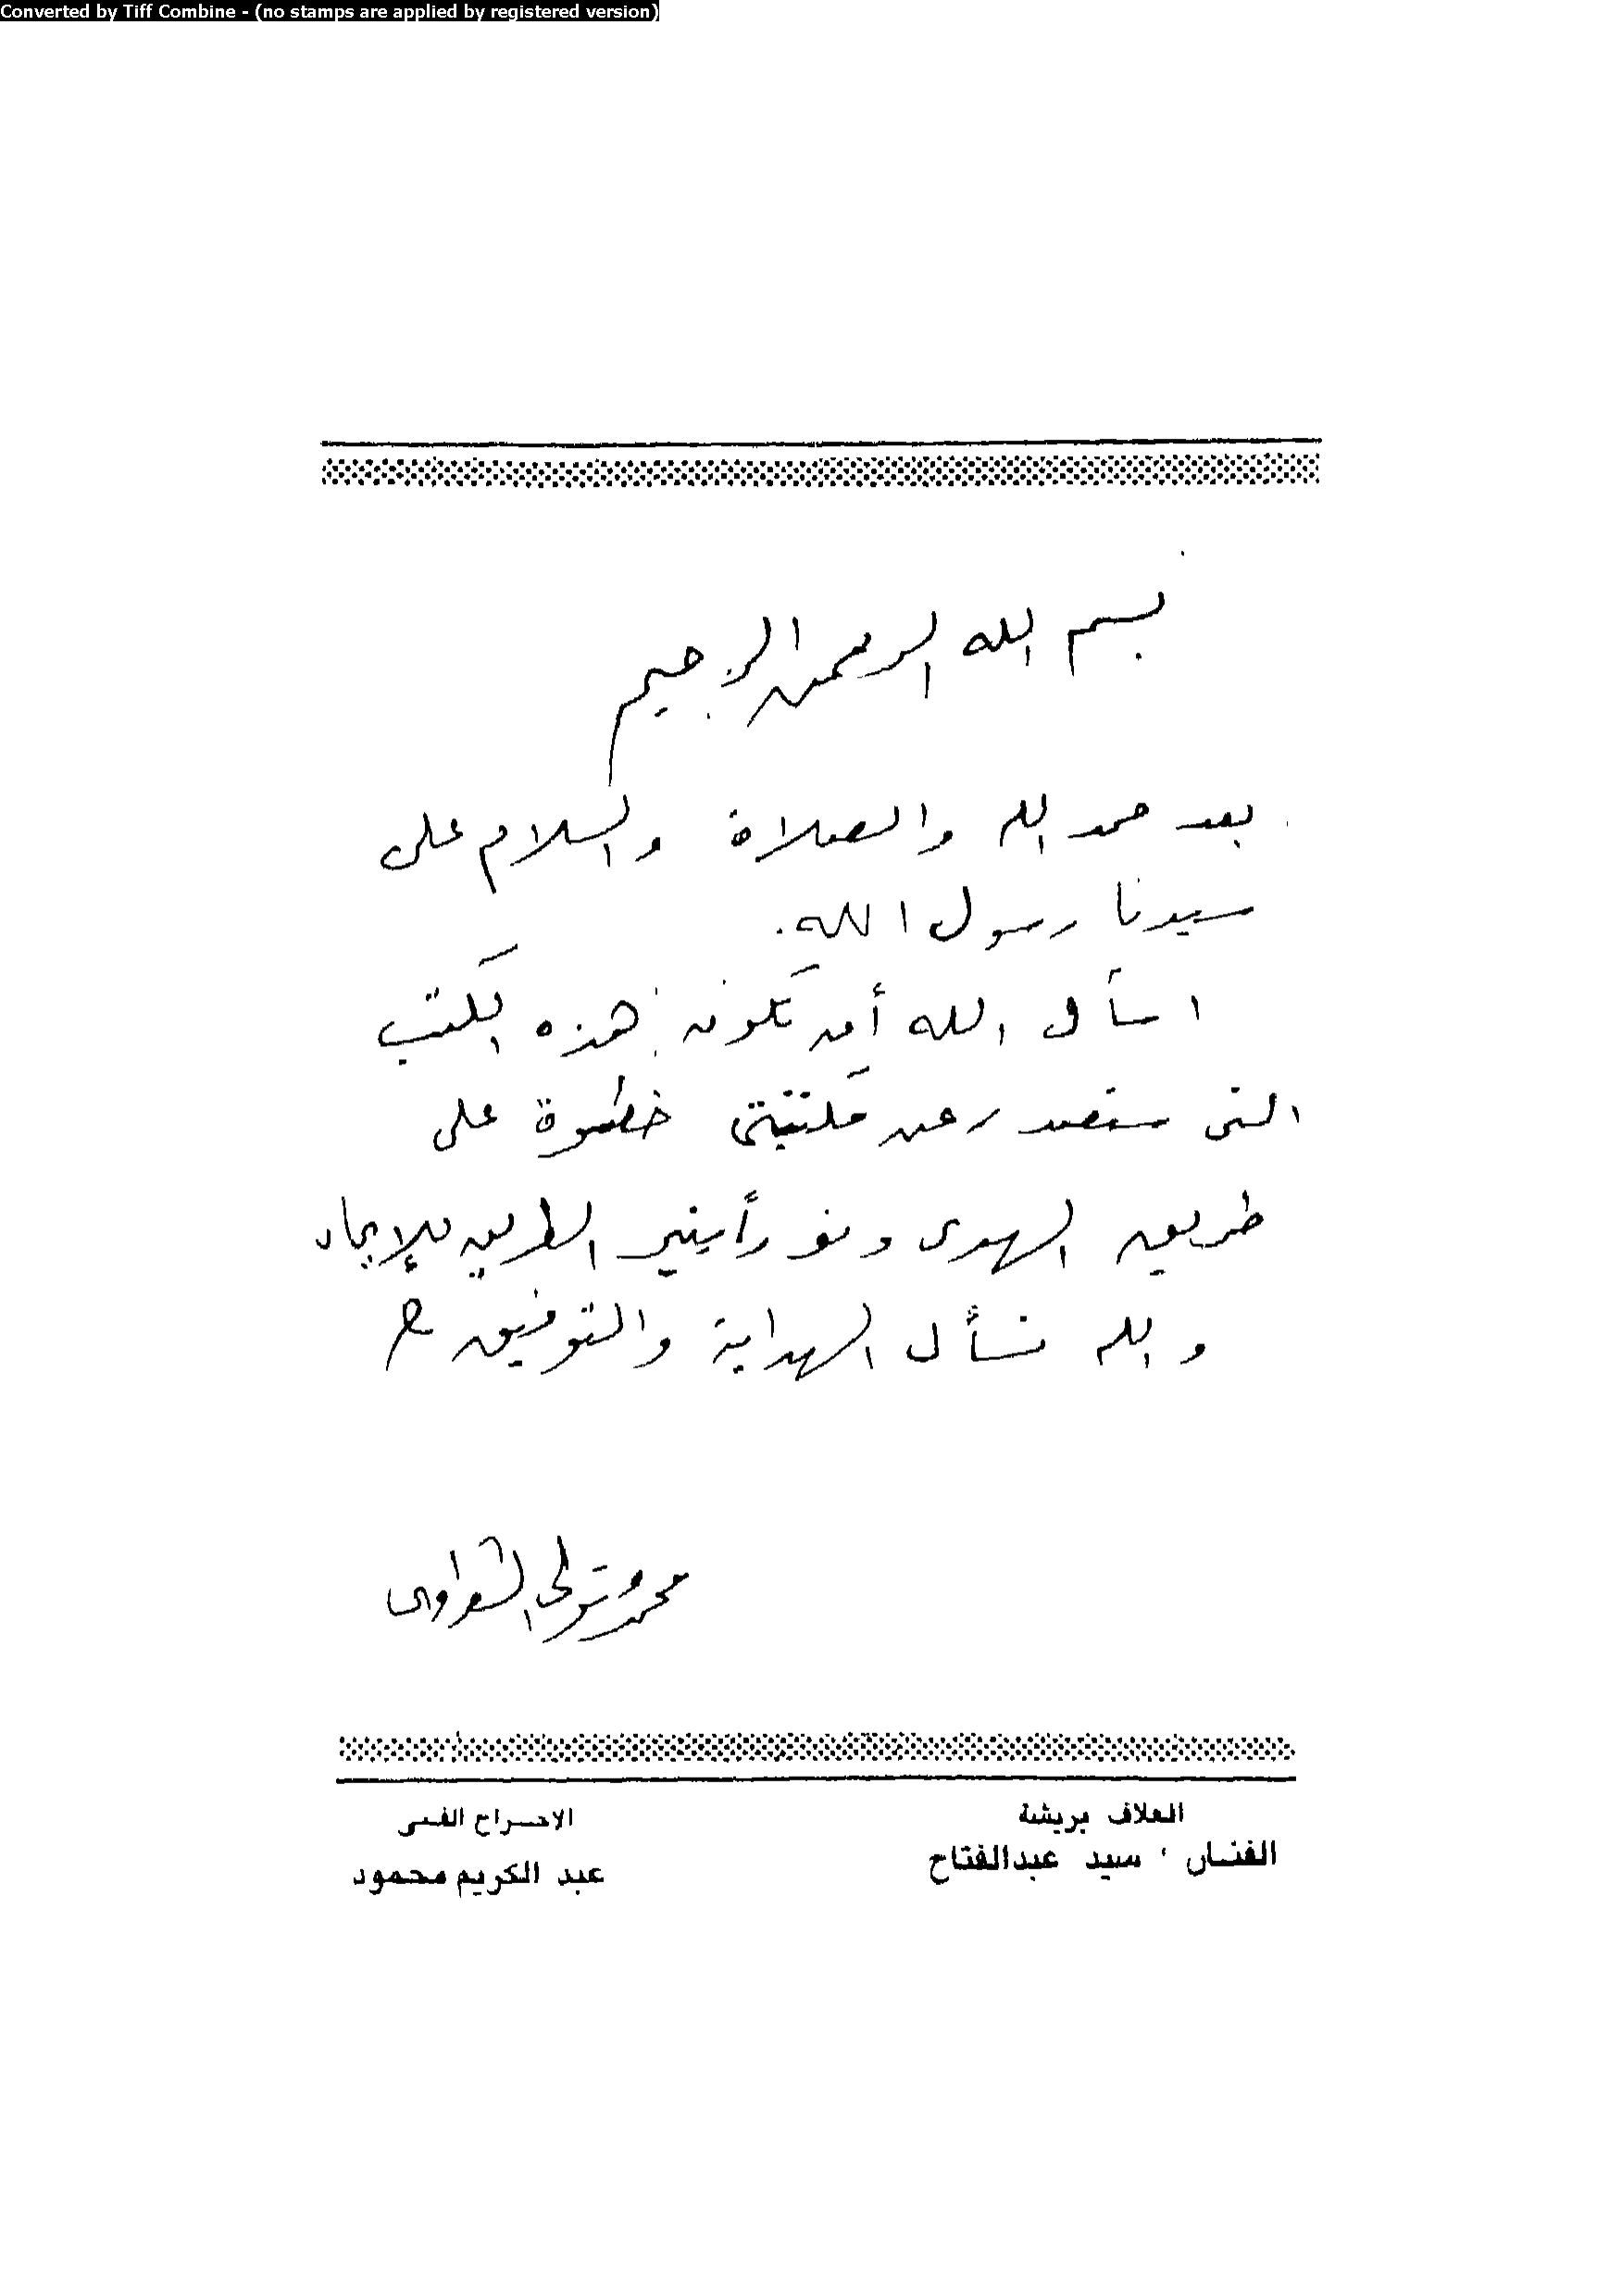 Converted by Tiff Combine - (no stamps are applied by registered version)
بسم الله الرحمن الرحيم
بعد حمد الله والصلاة والسلام على
سيدنا رسول الله.
اسأل الله أن تكون هذه الكتب
التى ستصدر عن مكتبتى خطوة على
طريق الهدى ونورا ينير الطريق للإيمان
والله نسأل الهداية والتوفيق
محمد متولى الشعراوى
الغلاف بريشة
الفنان سيد عبدالفتاح
الاخراج الفنى
عبد الكريم محمود